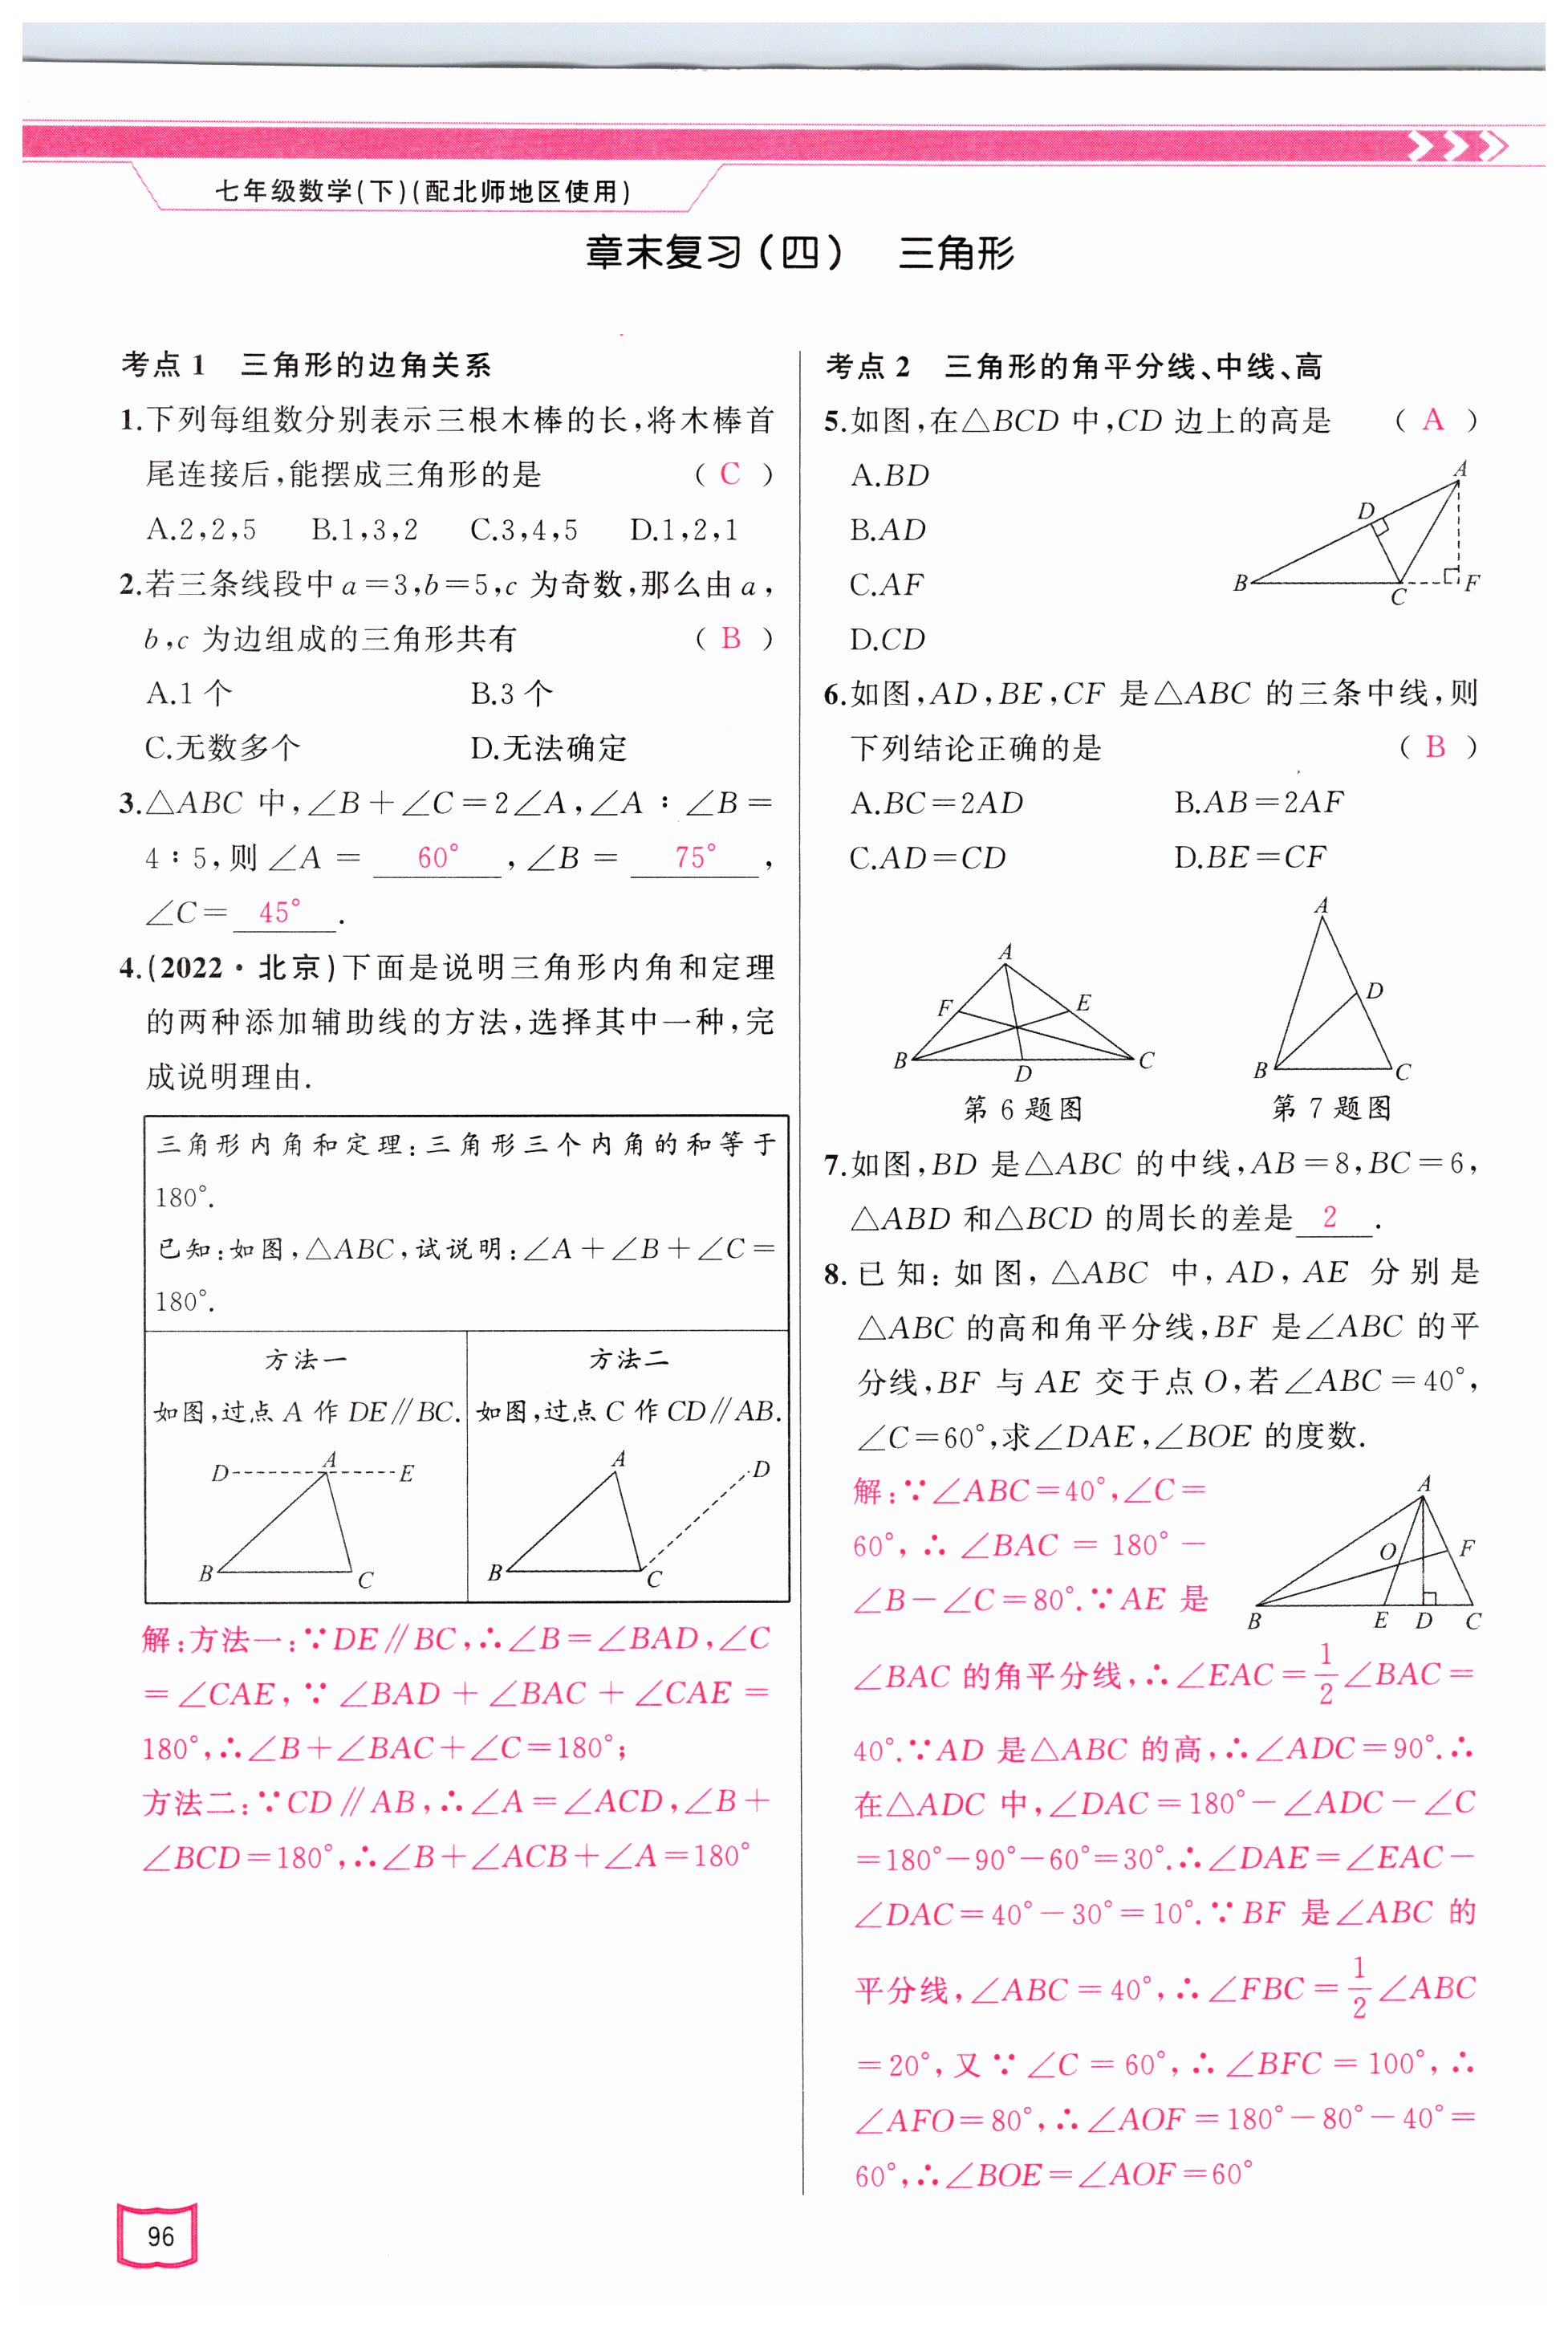 七年级数学(下)(配北师地区使用)
章末复习(四) 三角形
考点1 三角形的边角关系
1.下列每组数分别表示三根木棒的长,将木棒首
尾连接后,能摆成三角形的是 ( C )
A.2,2,5 B.1,3,2 C.3,4,5 D.1,2,1
2.若三条线段中a=3,b=5,c为奇数,那么由a,
b,c为边组成的三角形共有 ( B )
A.1个 B.3个
C.无数多个 D.无法确定
3.△ABC中,∠B+∠C=2∠A,∠A:∠B=
4:5,则∠A= 60° ,∠B= 75° ,
∠C= 45° .
4.(2022·北京)下面是说明三角形内角和定理
的两种添加辅助线的方法,选择其中一种,完
成说明理由.
三角形内角和定理:三角形三个内角的和等于
180°.
已知:如图,△ABC,试说明:∠A+∠B+∠C=
180°.
方法一
如图,过点A作DE∥BC.
D A E
B C
方法二
如图,过点C作CD∥AB.
A D
B C
解:方法一:∵DE∥BC,∴∠B=∠BAD,∠C
=∠CAE,∵∠BAD+∠BAC+∠CAE=
180°,∴∠B+∠BAC+∠C=180°;
方法二:∵CD∥AB,∴∠A=∠ACD,∠B+
∠BCD=180°,∴∠B+∠ACB+∠A=180°
考点2 三角形的角平分线、中线、高
5.如图,在△BCD中,CD边上的高是 ( A )
A.BD
B.AD
C.AF
D.CD
A
D
B C F
6.如图,AD,BE,CF是△ABC的三条中线,则
下列结论正确的是 ( B )
A.BC=2AD B.AB=2AF
C.AD=CD D.BE=CF
A
F E
B D C
第6题图
A
D
B C
第7题图
7.如图,BD是△ABC的中线,AB=8,BC=6,
△ABD和△BCD的周长的差是 2 .
8.已知:如图,△ABC中,AD,AE分别是
△ABC的高和角平分线,BF是∠ABC的平
分线,BF与AE交于点O,若∠ABC=40°,
∠C=60°,求∠DAE,∠BOE的度数.
A
O F
B E D C
解:∵∠ABC=40°,∠C=
60°,∴∠BAC=180°-
∠B-∠C=80°.∵AE是
∠BAC的角平分线,∴∠EAC=1/2∠BAC=
40°.∵AD是△ABC的高,∴∠ADC=90°.∴
在△ADC中,∠DAC=180°-∠ADC-∠C
=180°-90°-60°=30°.∴∠DAE=∠EAC-
∠DAC=40°-30°=10°.∵BF是∠ABC的
平分线,∠ABC=40°,∴∠FBC=1/2∠ABC
=20°,又∵∠C=60°,∴∠BFC=100°,∴
∠AFO=80°,∴∠AOF=180°-80°-40°=
60°,∴∠BOE=∠AOF=60°
96